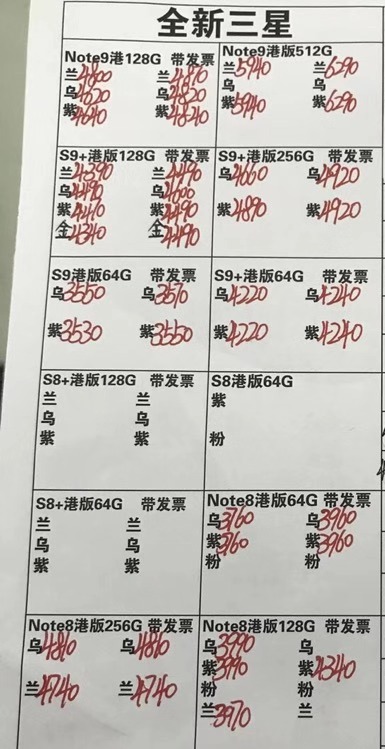 全新三星
Note9港128G 带发票
兰4800 兰4810
乌4620 乌4820
紫4640 紫4840
Note9港版512G
兰5940 兰6290
乌 乌
紫5940 紫6290
S9+港版128G 带发票
兰4390 兰4490
乌4490 乌4600
紫4410 紫4490
金4340 金4490
S9+港版256G 带发票
乌4660 乌4920
紫4890 紫4920
S9港版64G 带发票
乌3550 乌3570
紫3530 紫3550
S9+港版64G 带发票
乌4220 乌4240
紫4220 紫4240
S8+港版128G 带发票
兰 兰
乌 乌
紫 紫
S8港版64G
紫
粉
S8+港版64G 带发票
兰 兰
乌 乌
紫 紫
Note8港版64G 带发票
乌3760 乌3960
紫3760 紫3960
粉 粉
Note8港版256G 带发票
乌4810 乌4810
兰4740 兰4740
Note8港版128G 带发票
乌3990 乌
紫3990 紫4340
粉 粉
兰3970 兰